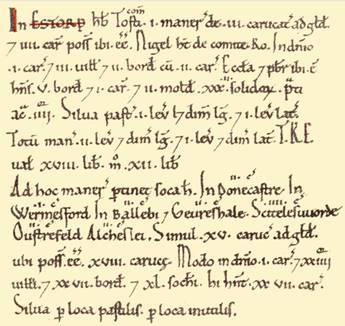 com
In ESTORP hb Tosti .i. maner de .iii. carucat ad gld.
7 iiii. car poss ibi ee. Nigel ht de comite Ro. In dnio
.i. car. 7 iii. uill 7 ii. bord cu .ii. car. Ecclа 7 pbr ibi e
hns .v. bord 7 .i. car. 7 ii. molend. xxx. solidoᵹ. pti
ac .iiii. Silua past .i. lev 7 dim lg. 7 .i. lev lat.
Totu man .ii. lev 7 dim lg. 7 .i. lev 7 dim lat. T.R.E.
ual xviii. lib. m xii. lib
Ad hoc maner ptinet soca h. In Donecastre. In
Wermesford. In Ballebi 7 Geureshale. Scitelesuuorde
Oustrefeld Alcheslei. Simul .xv. caruc ad gld.
ubi poss. ee. xviii. caruce. Modo in dnio .i. car. 7 xxiiii
uill. 7 xxvii. bord. 7 xl. sochi. hi hnt. xxvii. car.
Silua p loca pastilis. p loca inutilis.